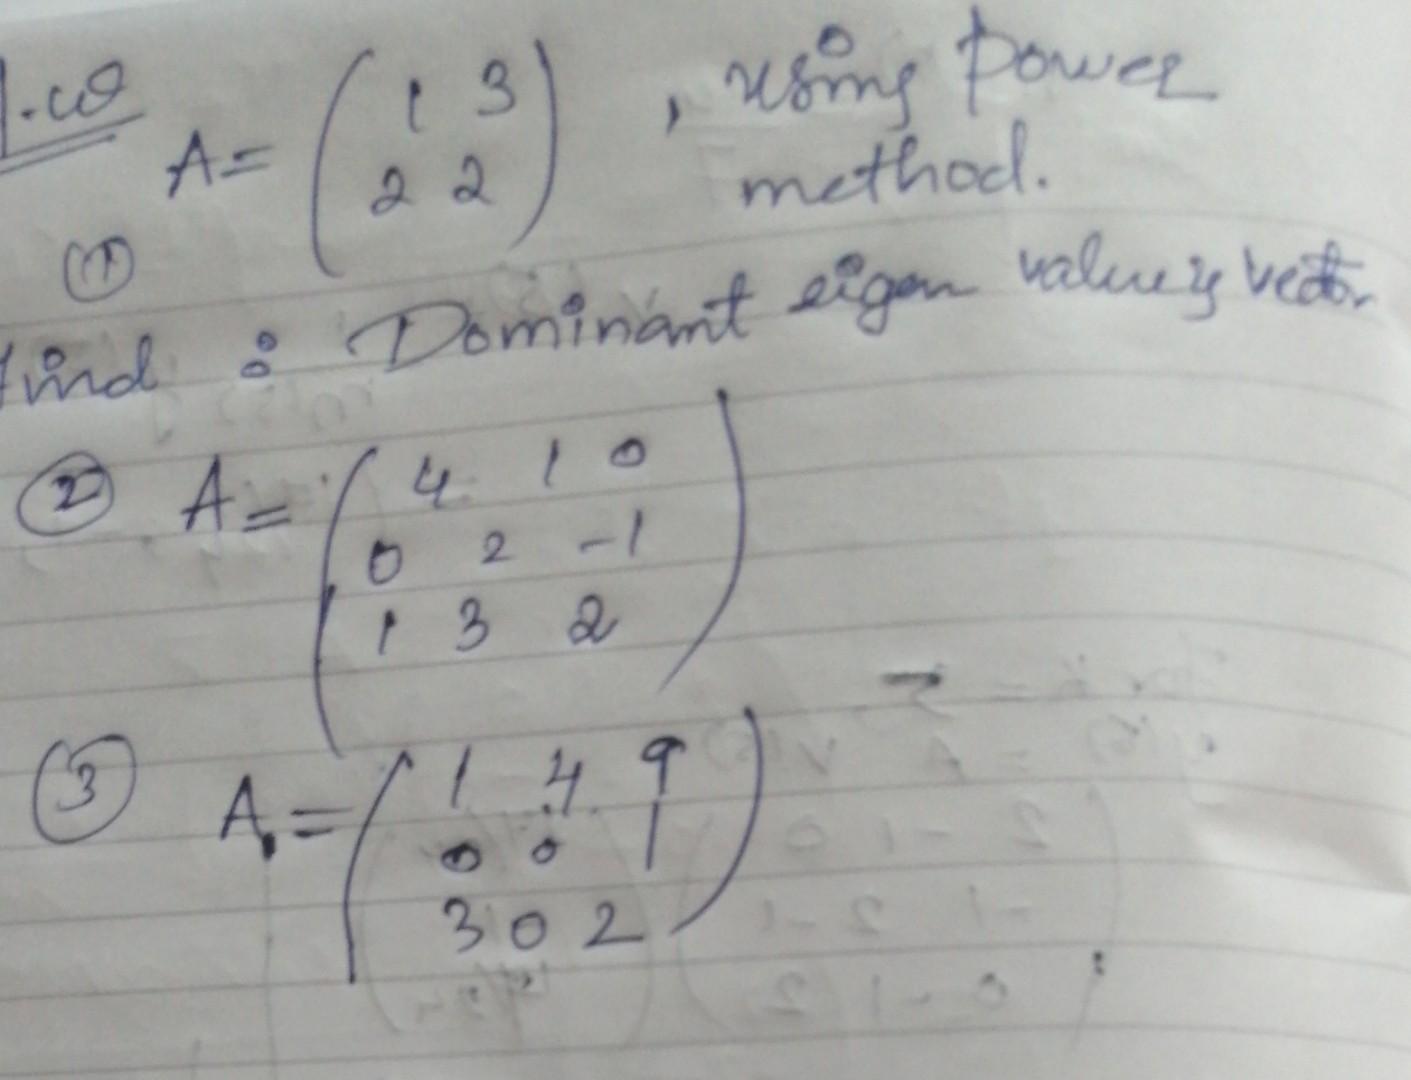 H.W
A = ( 1 3 ) , using power
( 2 2 ) method.
①
find : Dominant eigen value & vector
② A = ( 4 1 0
0 2 -1
1 3 2 )
③ A = ( 1 4 9
0 0 1
3 0 2 )